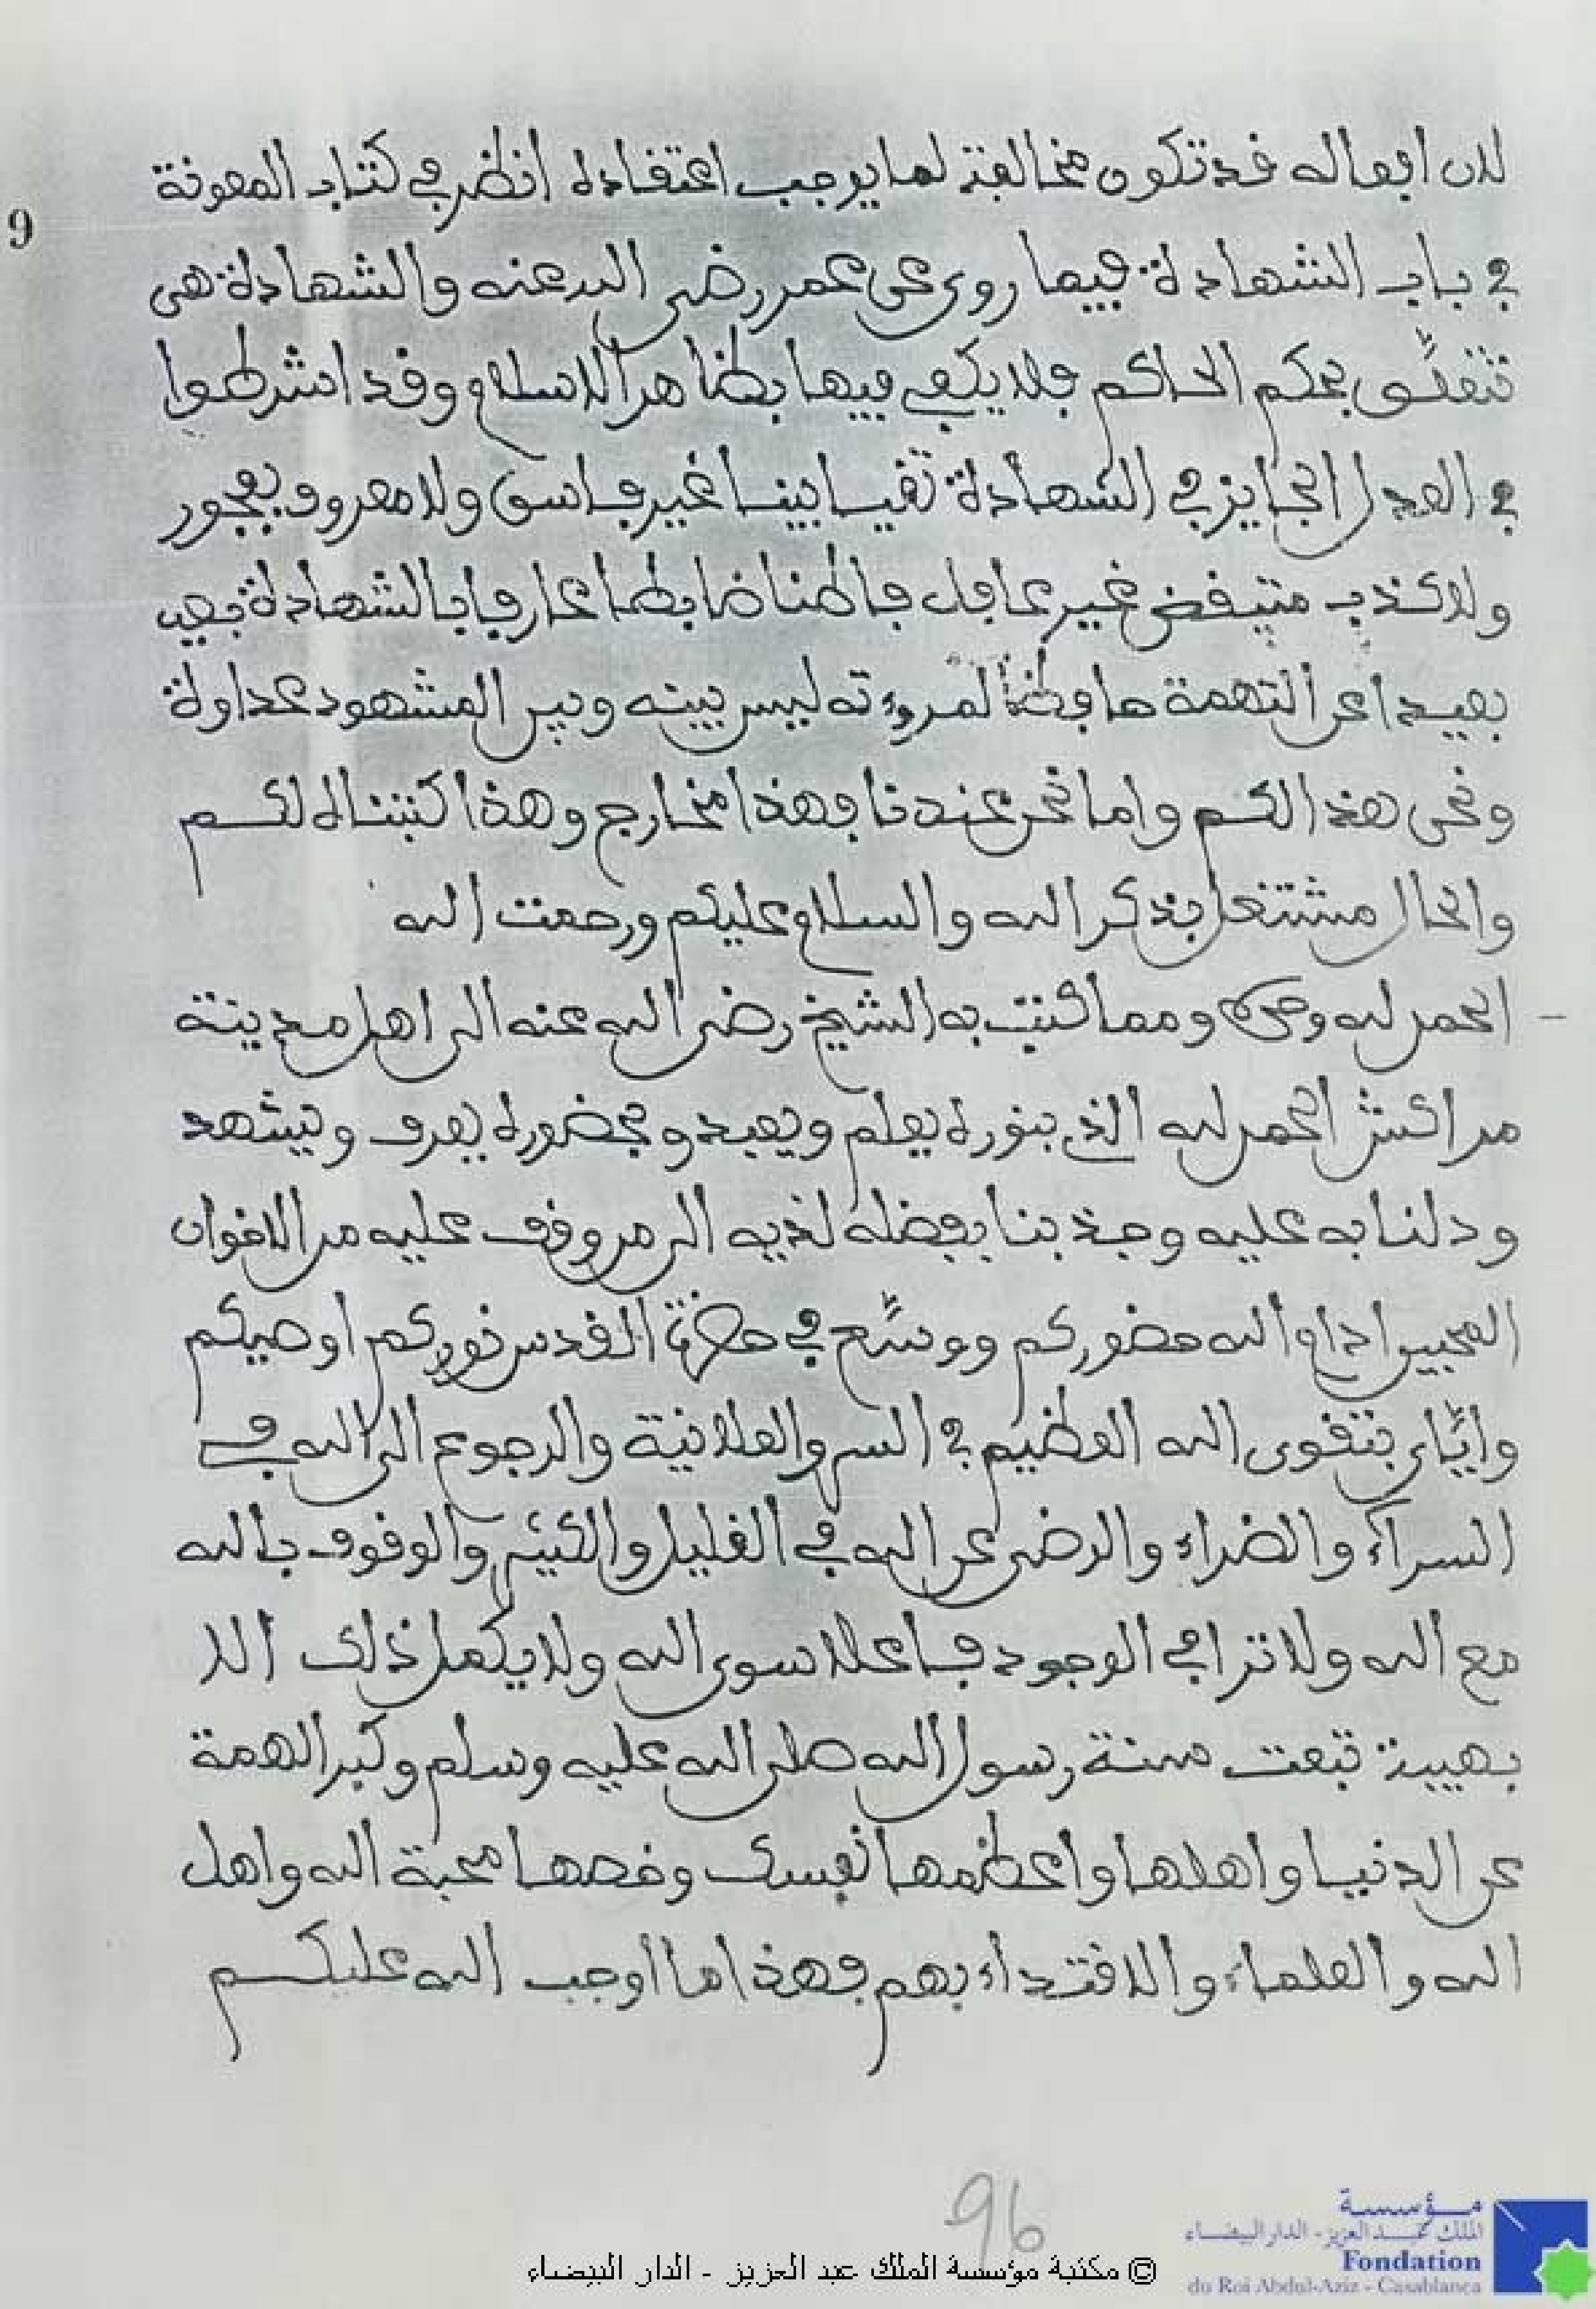 لان افعاله قد تكون مخالفة لما يوجب اعتقاده انظر في كتاب المعونة
9
في باب الشهادة فيما روي عن عمر رضي الله عنه والشهادة هي
تتعلّق بحكم الحاكم فلا يكفي فيها بظاهر الاسلام وقد اشرطوا
في العدل الجايز في الشهادة تقيا بينا غير فاسق ولا معروف بفجور
ولا كذب متيقض غير غافل فاطنا ضابطا عارفا بالشهادة
بعيدا عن التهمة حافظا لمروءته ليس بينه وبين المشهود عداوة
ونحن هذا لكم واما نحن عندنا فهذا مخارج وهذا كتبناه لكم
والحال مشتغل بذكر الله والسلام عليكم ورحمت الله
الحمد لله وحده ومما كتب به الشيخ رضي الله عنه الى اهل مدينة
مراكش الحمد لله الذي بنوره يعلم ويعبد وبحضوره يعرف ويشهد
ودلنا به عليه وجذبنا بفضله لديه الى من وقف عليه من الاخوان
المحبين ادام الله حضوركم ووسّع في حضرة القدس نوركم اوصيكم
وايّاي بتقوى الله العظيم في السر والعلانية والرجوع الى الله في
السرآء والضراء والرضى عن الله في القليل والكثير والوقوف بالله
مع الله ولا ترا في الوجود فاعلا سوى الله ولا يكمل ذلك الا
تبعت سنة رسول الله صلى الله عليه وسلم وكبر الهمة
عن الدنيا واهلها واعظمها نفسك وخصها محبة الله واهل
الله والعلماء والاقتداء بهم فهذا ما اوجب الله عليكم
96
مؤسسة
الملك عبد العزيز - الدار البيضاء
Fondation
du Roi Abdul-Aziz - Casablanca
© مكتبة مؤسسة الملك عبد العزيز - الدار البيضاء